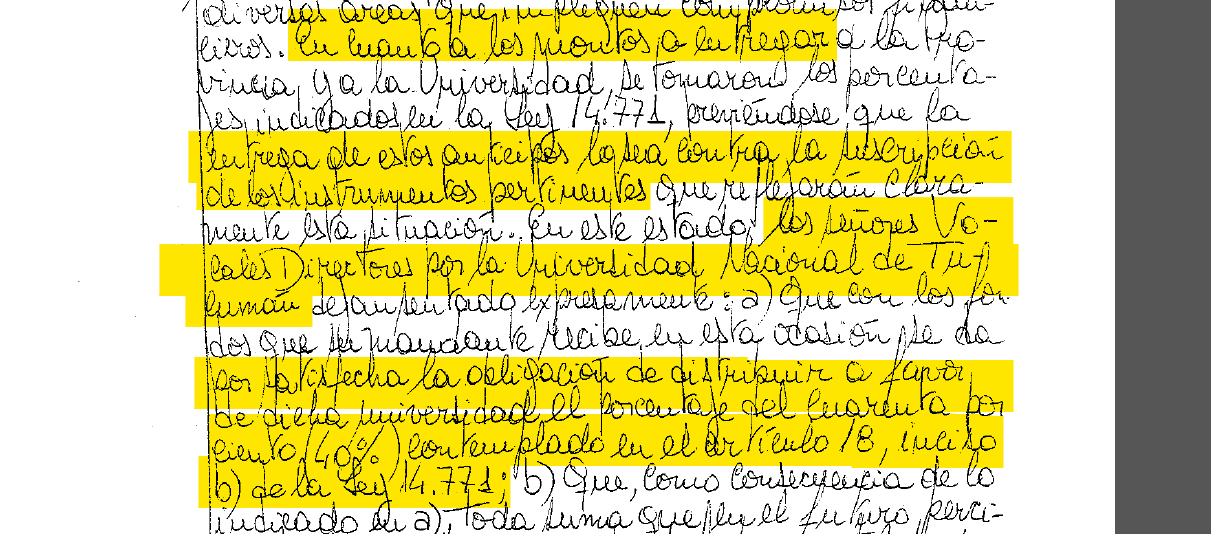 diversas áreas que impliquen compromisos finan-
cieros. En cuanto a los montos a entregar a la Pro-
vincia y a la Universidad, se tomaron los porcenta-
jes indicados en la Ley 14.771, previéndose que la
entrega de estos anticipos lo sea contra la suscripción
de los instrumentos pertinentes que reflejarán clara-
mente esta situación. En este estado, los señores Vo-
cales Directores por la Universidad Nacional de Tu-
cumán dejan sentado expresamente: a) Que con los fon-
dos que su mandante recibe en esta ocasión se da
por satisfecha la obligación de distribuir a favor
de dicha universidad el porcentaje del cuarenta por
ciento (40%) contemplado en el artículo 18, inciso
b) de la Ley 14.771; b) Que, como consecuencia de lo
indicado en a), toda suma que en el futuro perci-